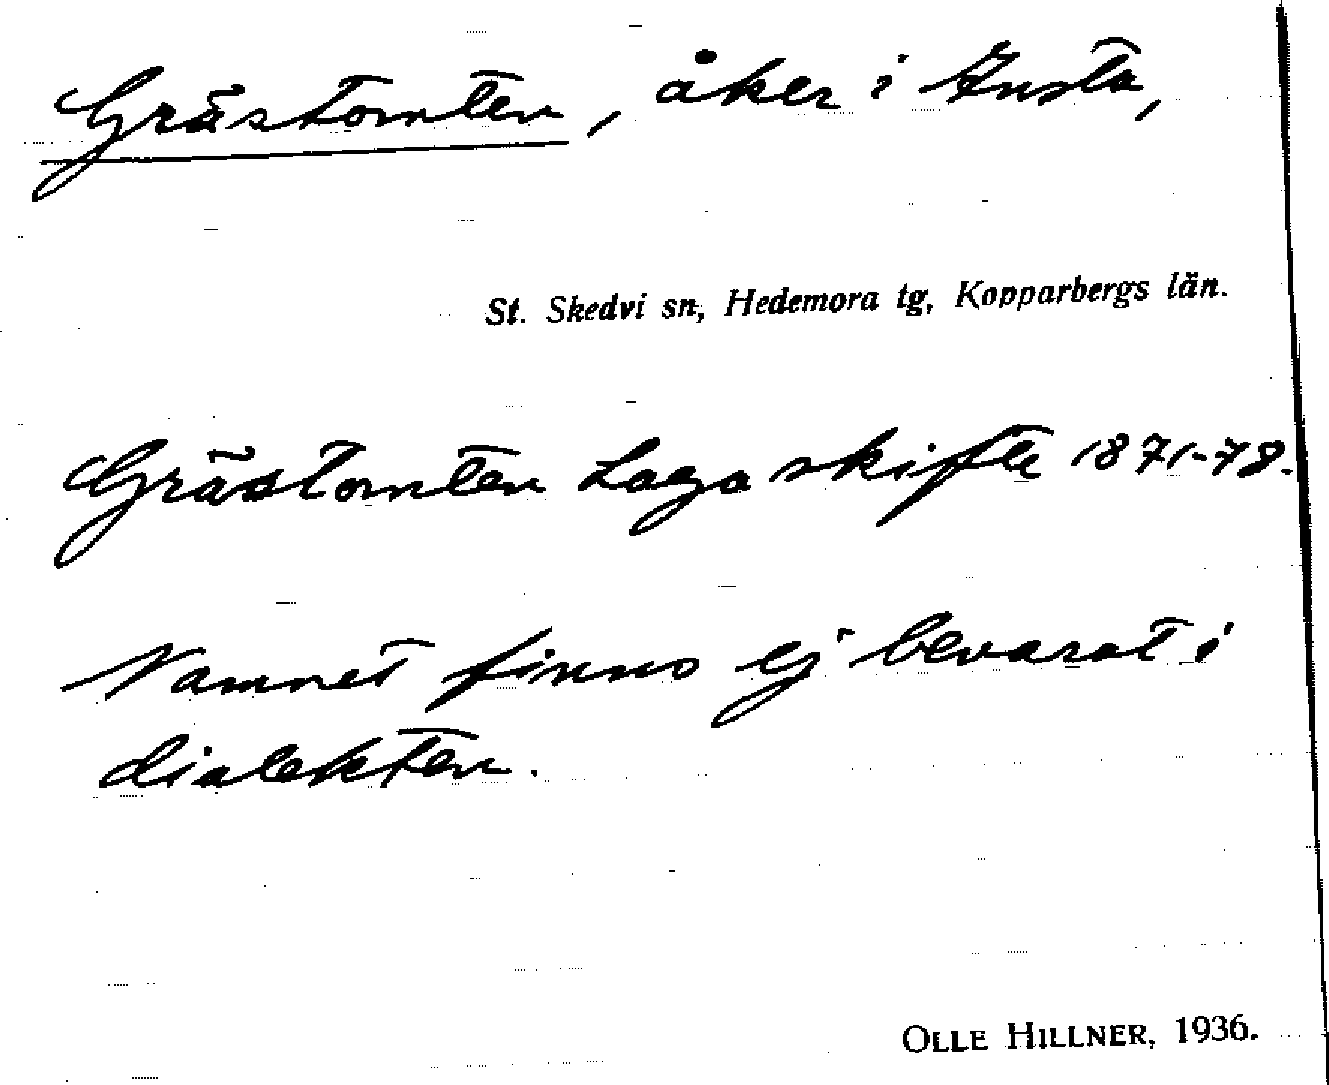 Grästomten, åker i Knsta,
St. Skedvi sn, Hedemora tg, Kopparbergs län.
Grästomten Laga skifte 1871-78.
Namnet finns ej bevarat i
dialekten.
OLLE HILLNER, 1936.